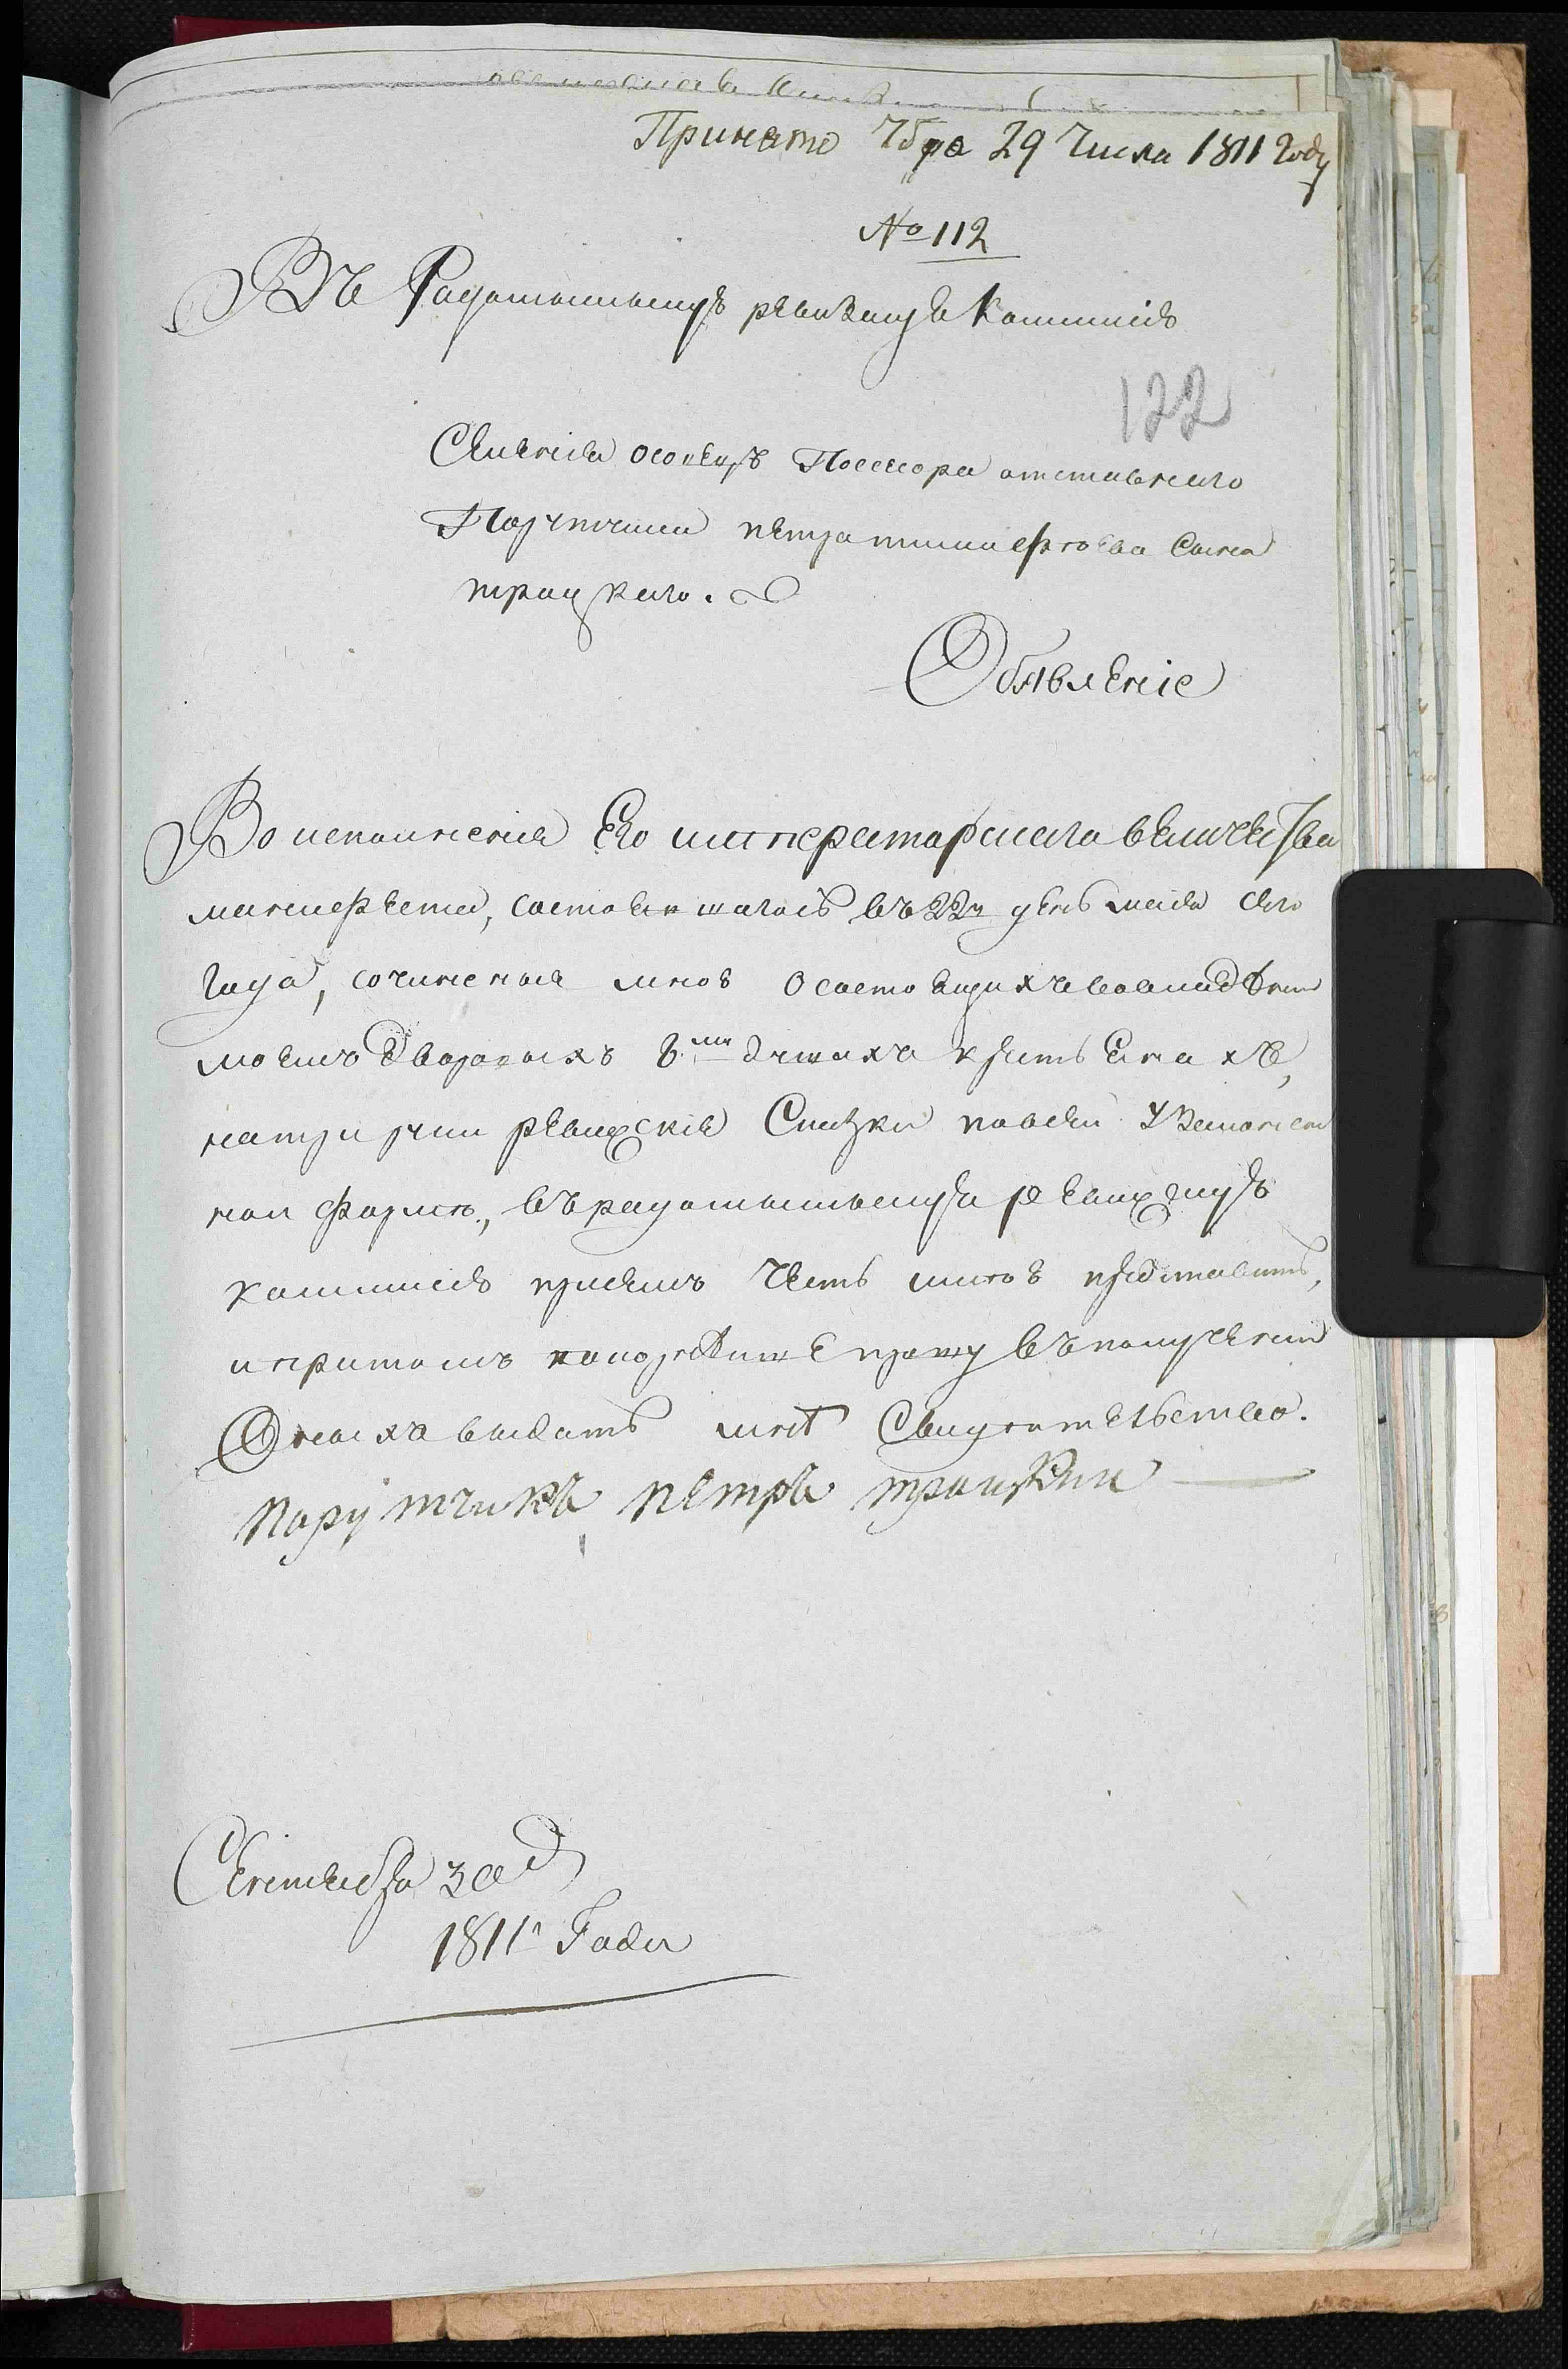 Принято 7бра 29 Числа 1811 Году
№ 112
Въ Радомыльскую ревизкую Коммисію
122
Селенія Осопецъ Посесора отставнаго
Порутчика петра тимофеева Сына
трацкаго.
Объявленіе
Во исполненія Его императорскаго величества
манифеста, состоявшагось въ 22й день маія сего
года, сочиненыя мною о состоящихъ во владѣніи
моемъ дворовыхъ 8ми душахъ крестьянахъ,
натри ручи ревижскія Сказки по всей Узаконен
ной форме, въ радомыльскую ревижскую
коммисію присемъ Честь имею представить,
и притомъ покорнѣйше прошу въ получении
Оныхъ выдать мнѣ Свидетельство.
порутчикъ петръ трацкий
Сентебра 30 д
1811 Года